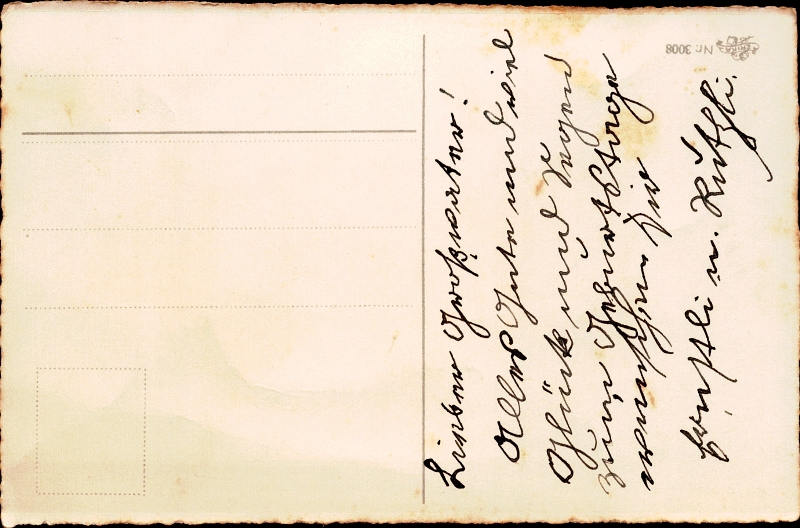 Lieber Großvater!
Alles Gute und viel
Glück und Segen
zum Geburtstage
wünschen Dir
Ernstli u. Rützli.
Nr. 3008